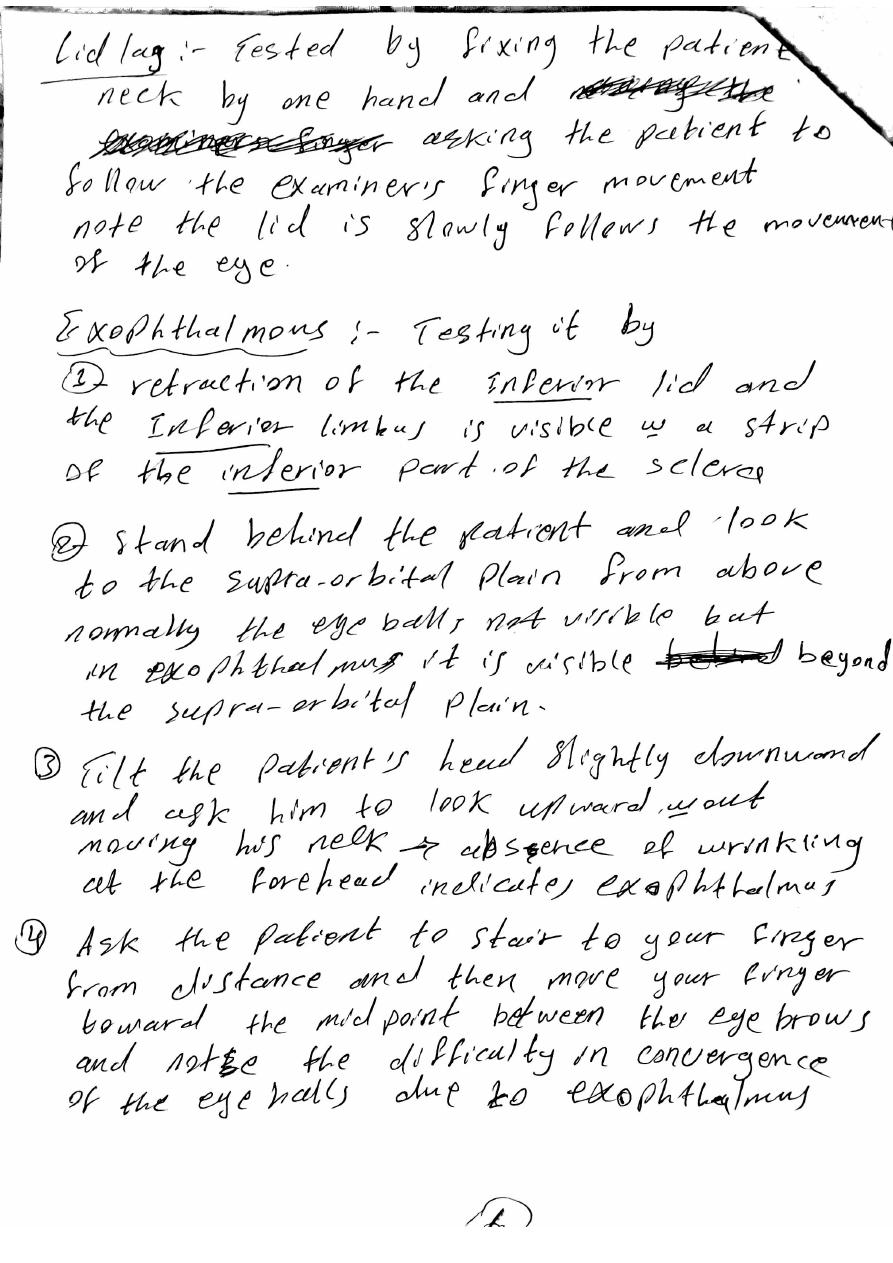 Lid lag :- Tested by fixing the patient
neck by one hand and
asking the patient to
follow the examiner's finger movement
note the lid is slowly follows the movement
of the eye.
Exophthalmous :- Testing it by
① retraction of the inferior lid and
the Inferior limbus is visible w a strip
of the inferior part of the sclera
② Stand behind the patient and look
to the supra-orbital plain from above
normally the eye balls not visible but
in exophthalmus it is visible beyond
the supra-orbital plain.
③ Tilt the patient's head slightly downward
and ask him to look upward wout
moving his neck → absence of wrinkling
at the forehead indicates exophthalmus
④ Ask the patient to stair to your finger
from distance and then move your finger
toward the midpoint between the eye brows
and note the difficulty in convergence
of the eye balls due to exophthalmus